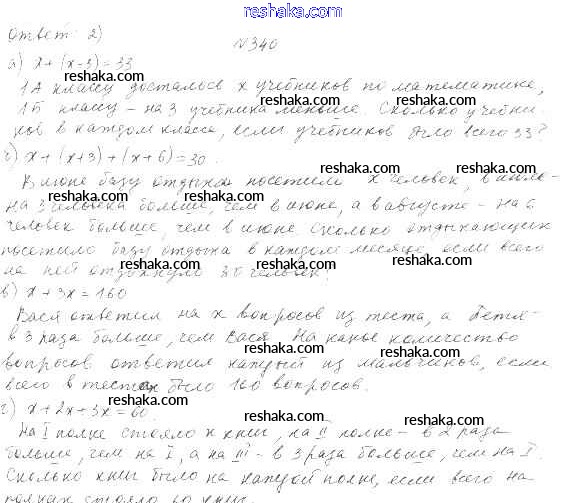 www.reshaka.com
Ответ: 2)
№340
а) x+(x-3)=33
reshaka.com reshaka.com
1А классу досталось x учебников по математике,
1Б классу – на 3 учебника меньше. Сколько учебни
ков в каждом классе, если учебников было всего 33?
reshaka.com reshaka.com
б) x+(x+3)+(x+6)=30.
reshaka.com reshaka.com
В июне базу отдыха посетили x человек, в июле-
на 3 человека больше, чем в июне, а в августе – на 6
reshaka.com reshaka.com
человек больше, чем в июне. Сколько отдыхающих
посетило базу отдыха в каждом месяце, если всего
reshaka.com reshaka.com
на ней отдохнуло 30 человек.
в) x+3x=160
reshaka.com
Вася ответил на x вопросов из теста, а Петя-
в 3 раза больше, чем Вася. На какое количество
reshaka.com reshaka.com
вопросов ответил каждый из мальчиков, если
всего в тестах было 160 вопросов.
reshaka.com reshaka.com
г) x+2x+3x=60.
На I полке стояло x книг, на II полке – в 2 раза
reshaka.com reshaka.com
больше, чем на I, а на III – в 3 раза больше, чем на I.
Сколько книг было на каждой полке, если всего на
reshaka.com reshaka.com
полках стояло 60 книг.